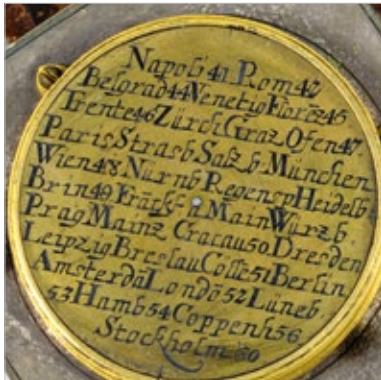 Napoli 41 Rom 42
Belgrad 44 Venetig Florēz 45
Trente 46 Zürch Graz Ofen 47
Paris Strasb Salzb München
Wien 48 Nürnb Regensp Heidelb
Brin 49 Fräckf a Main Würzb.
Prag Mainz Cracau 50. Dresden
Leipzig Breslau Cölle 51 Berlin
Amsterdā Londō 52 Lüneb
53 Hamb 54 Coppenh 56
Stockholm 60